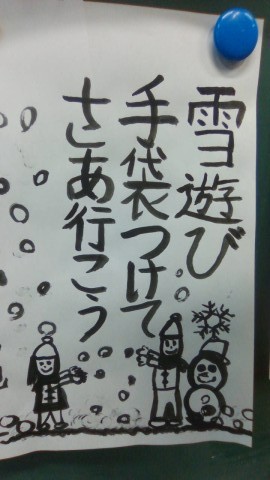 雪遊び
手袋つけて
さあ行こう